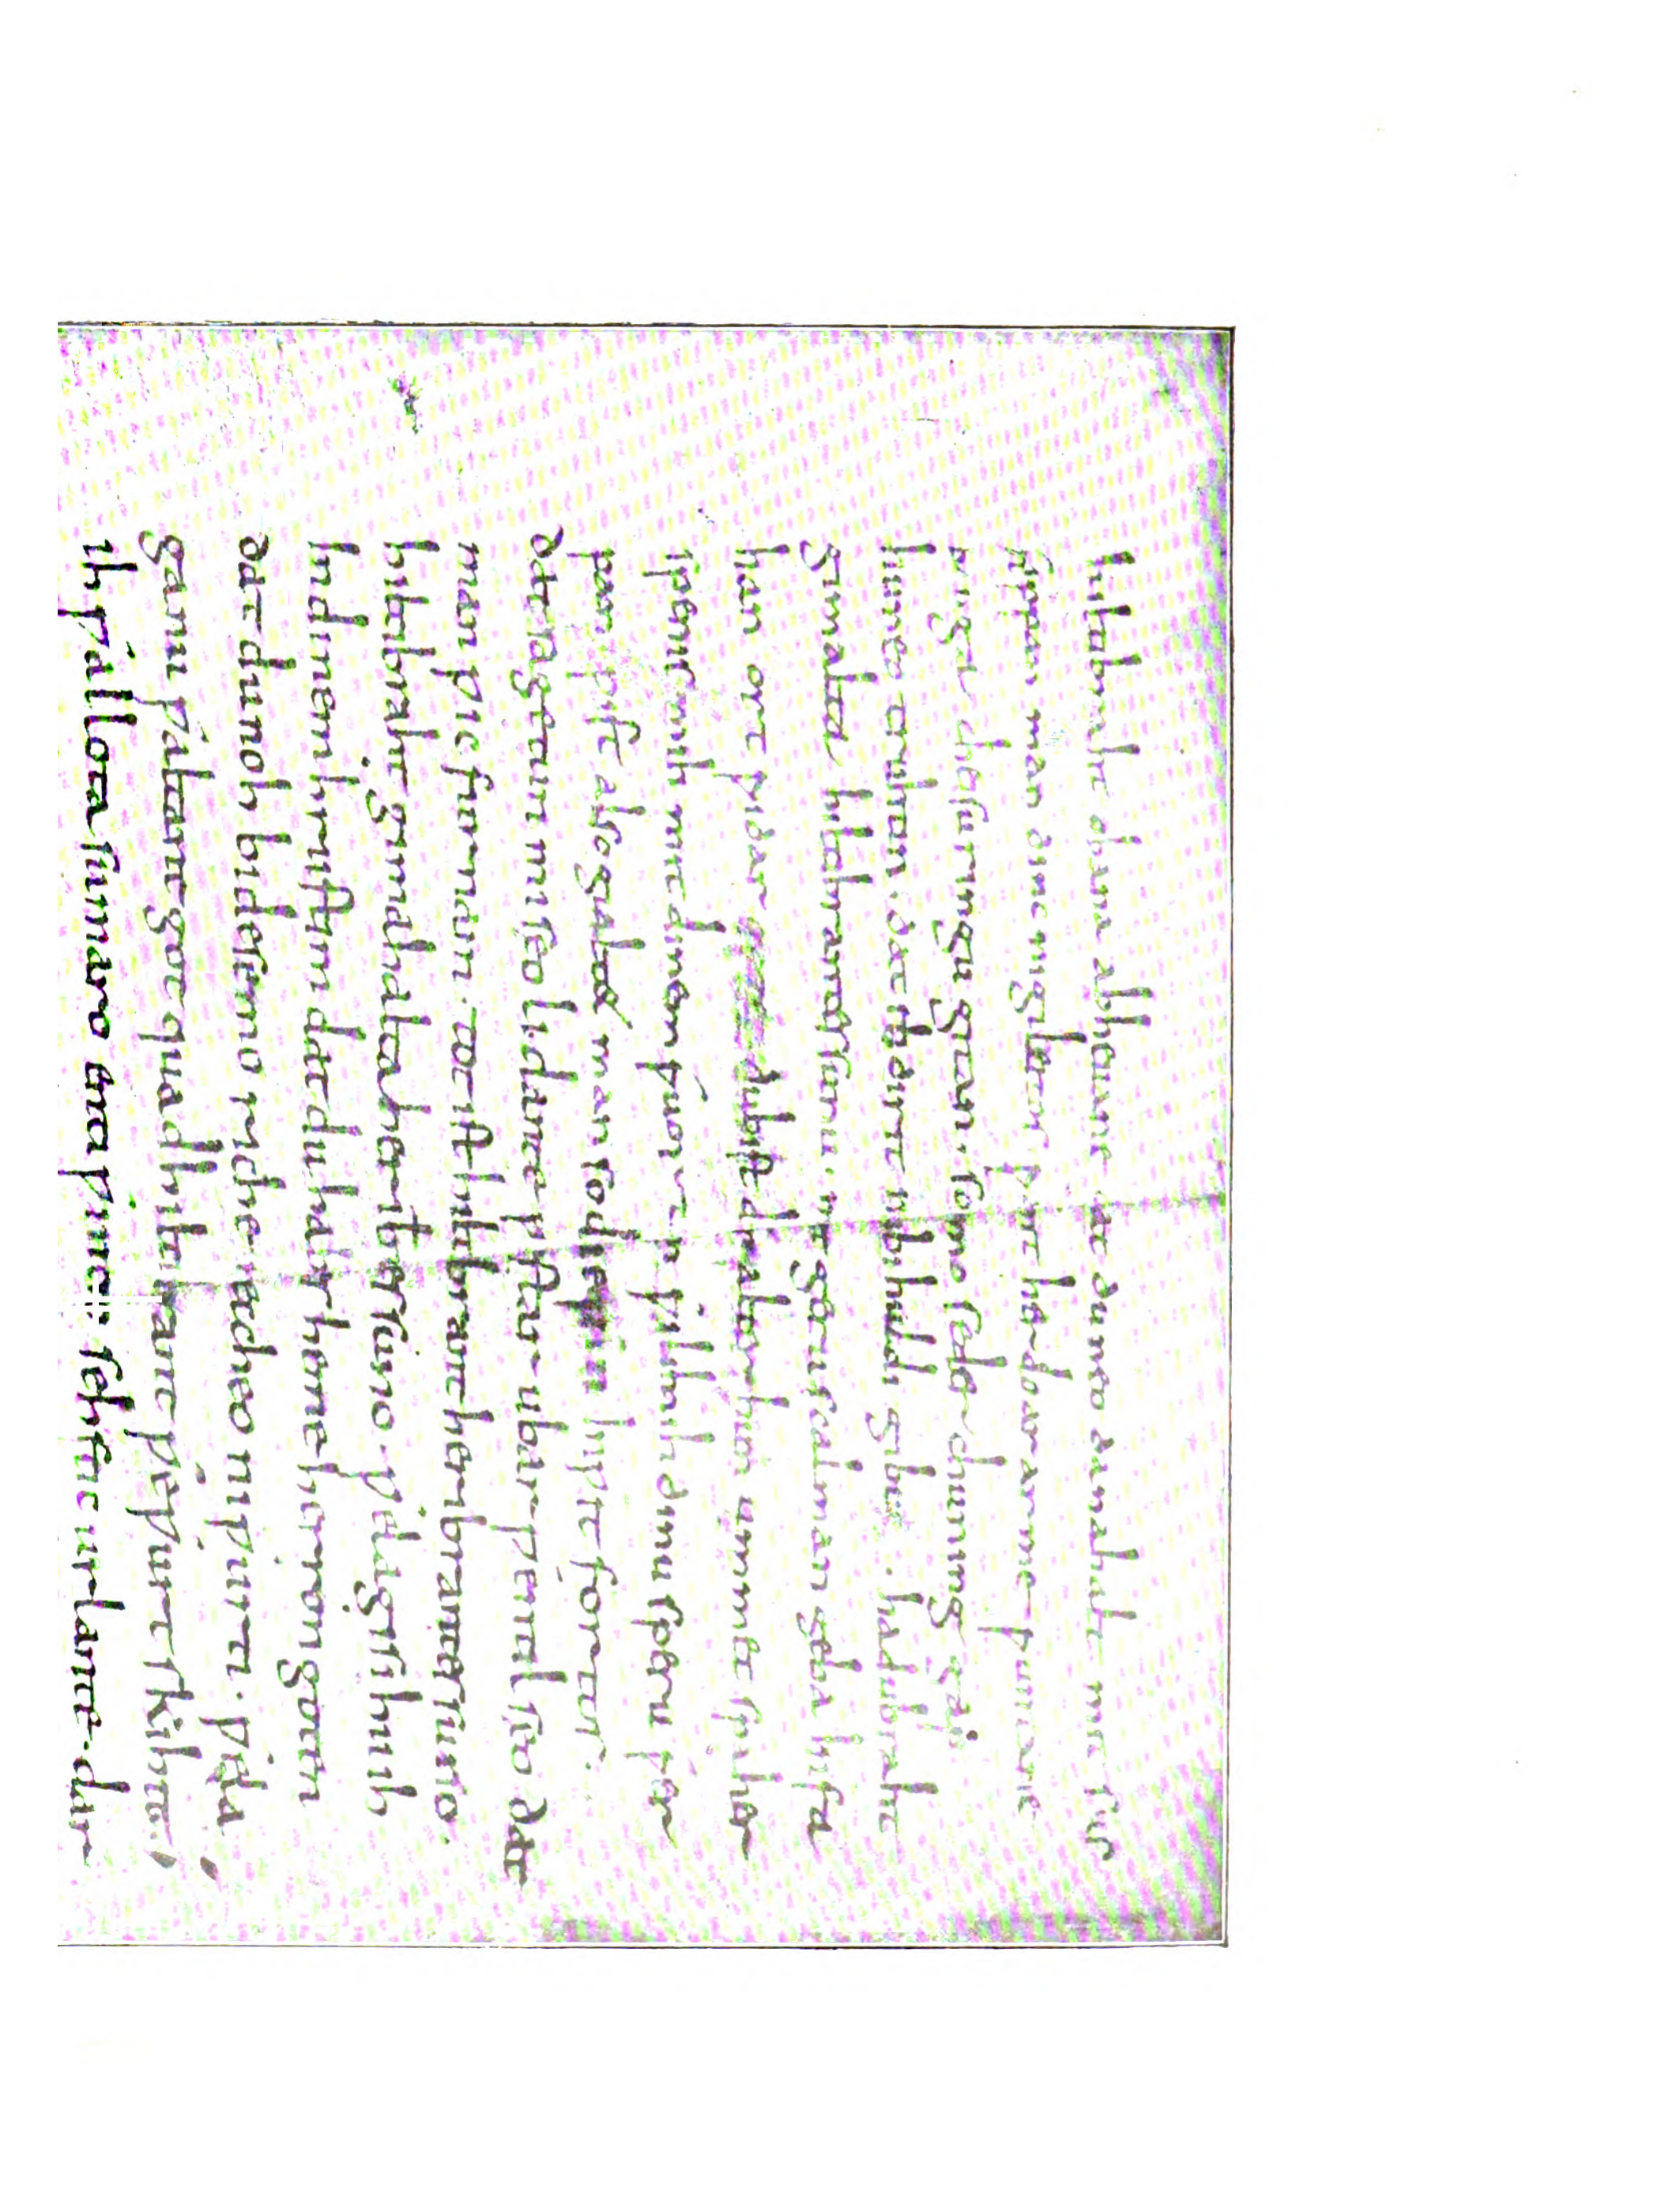 hiltibraht obana abheuane dat du neo danahalt mit sus
sippan man dinc ni gileitos ƿant her do ar arme ƿuntane
bouga cheisuringu gitan. so imo sede chuning gap
huneo truhtin. dat ih dir it nu bihuldi gibu. hadubraht
gimalta hiltibrantes sunu. mit geru scal man geba infa
han ort ƿidar du bist dir alter hun ummet spaher
spenis mih mit dinem ƿuortun ƿilihuh dinu speru ƿer
pan pist also gialtet man so du inƿit fortos.
dat sagetun mi seo lidante ƿestar ubar ƿentilseo dat
man ƿic furnam. tot ist hiltibrant heribrantes suno.
hiltibraht gimahalta heribtes suno. ƿela gisihu ih
in dinem hrustim dat du habes heme herron goten
dat du noh bi desemo riche reccheo ni ƿurti. ƿela
ganu ƿaltant got quad hiltibrant ƿeƿurt skihit.
ih ƿallota sumaro enti ƿintro sehstic ur lante. dar